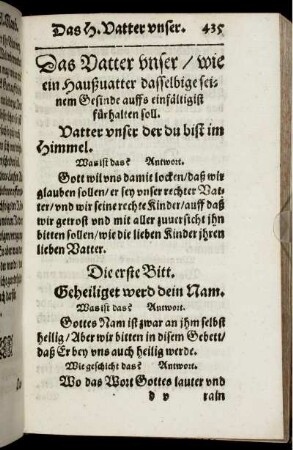 Das H. Vatter vnser. 435
Das Vatter vnser / wie
ein Haußuatter dasselbige sei-
nem Gesinde auffs einfältigist
fürhalten soll.
Vatter vnser der du bist im
Himmel.
Was ist das? Antwort.
Gott wil vns damit locken / daß wir
glauben sollen / er sey vnser rechter Vat-
ter / vnd wir seine rechte Kinder / auff daß
wir getrost vnd mit aller zuuersicht jhn
bitten sollen / wie die lieben Kinder jhren
lieben Vatter.
Die erste Bitt.
Geheiliget werd dein Nam.
Was ist das? Antwort.
Gottes Nam ist zwar an jhm selbst
heilig / Aber wir bitten in disem Gebett /
daß Er bey vns auch heilig werde.
Wie geschicht das? Antwort.
Wo das Wort Gottes lauter vnd
d v rain